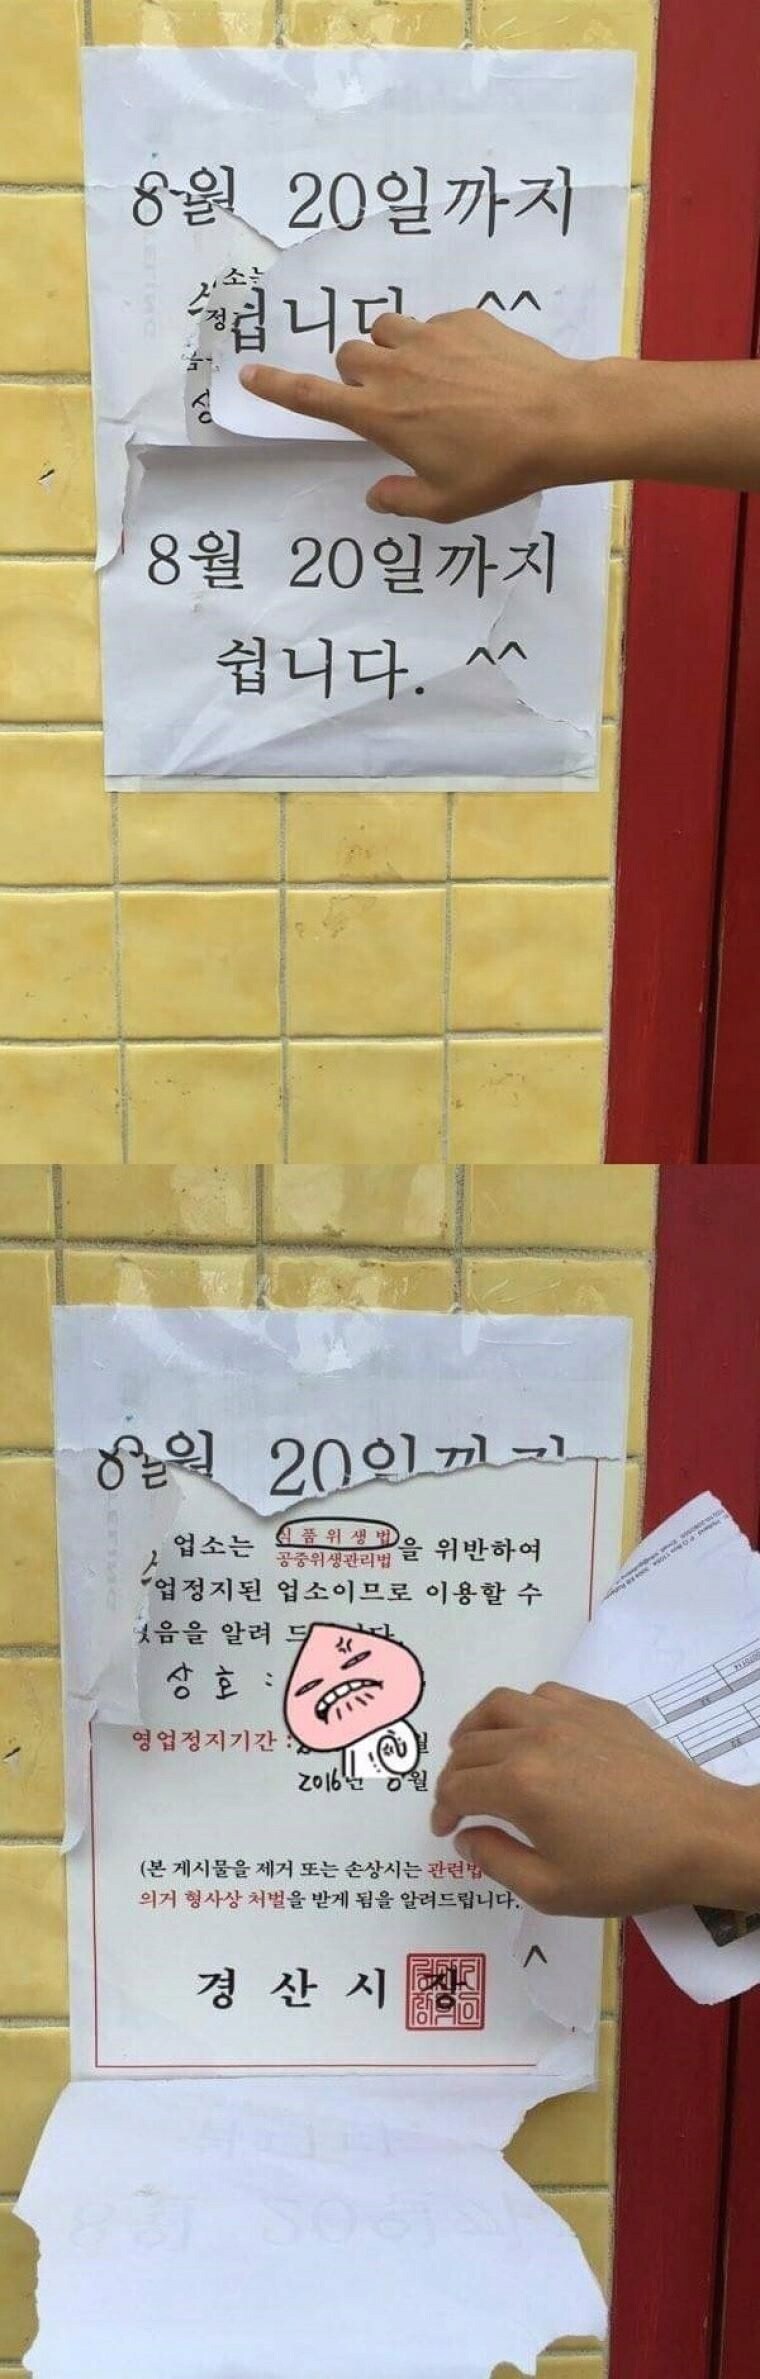 8월 20일까지
쉽니다. ^^
8월 20일까지
쉽니다. ^^
8월 20일까지
업소는 식품위생법 을 위반하여
공중위생관리법
업정지된 업소이므로 이용할 수
없음을 알려 드
상호 :
영업정지기간 :
2016년 8월
(본 게시물을 제거 또는 손상시는 관련법
의거 형사상 처벌을 받게 됨을 알려드립니다.
^
경산시장